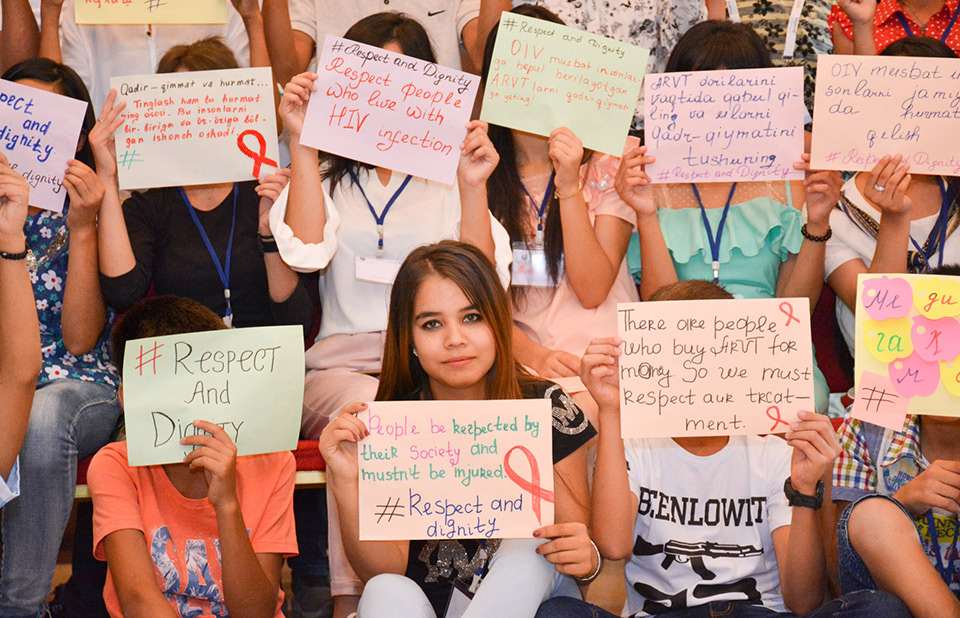 spect
and
dignity
me dignity
Qadr-qimmat va hurmat...
Tinglash ham bu hurmat
ning asosi. Bu insonlarni
bir-biriga va o'z-o'ziga bo'l-
gan ishonch oshadi.
#
#Respect and Dignity
Respect people
who live with
HIV infection
#Respect and Dignity
OIV musbat insonlar
ga bepul berilayotgan
ARVT
larni qadr-qiymati
ga yeting.
#Respect and Dignity
ARVT dorilarini
vaqtida qabul qi-
ling va ularni
Qadr-qiymatini
tushuning
#Respect and Dignity
OIV musbat in
sonlarni jamiy
da hurmat
qilish
#Respect and Dignity
# Respect
And
Dignity
People be respected by
their Society and
mustn't be injured.
#Respect and
dignity
There are people
who buy ARVT for
money so we must
respect our treat-
ment.
BEENLOWIT
Me gu
ra x
M
#